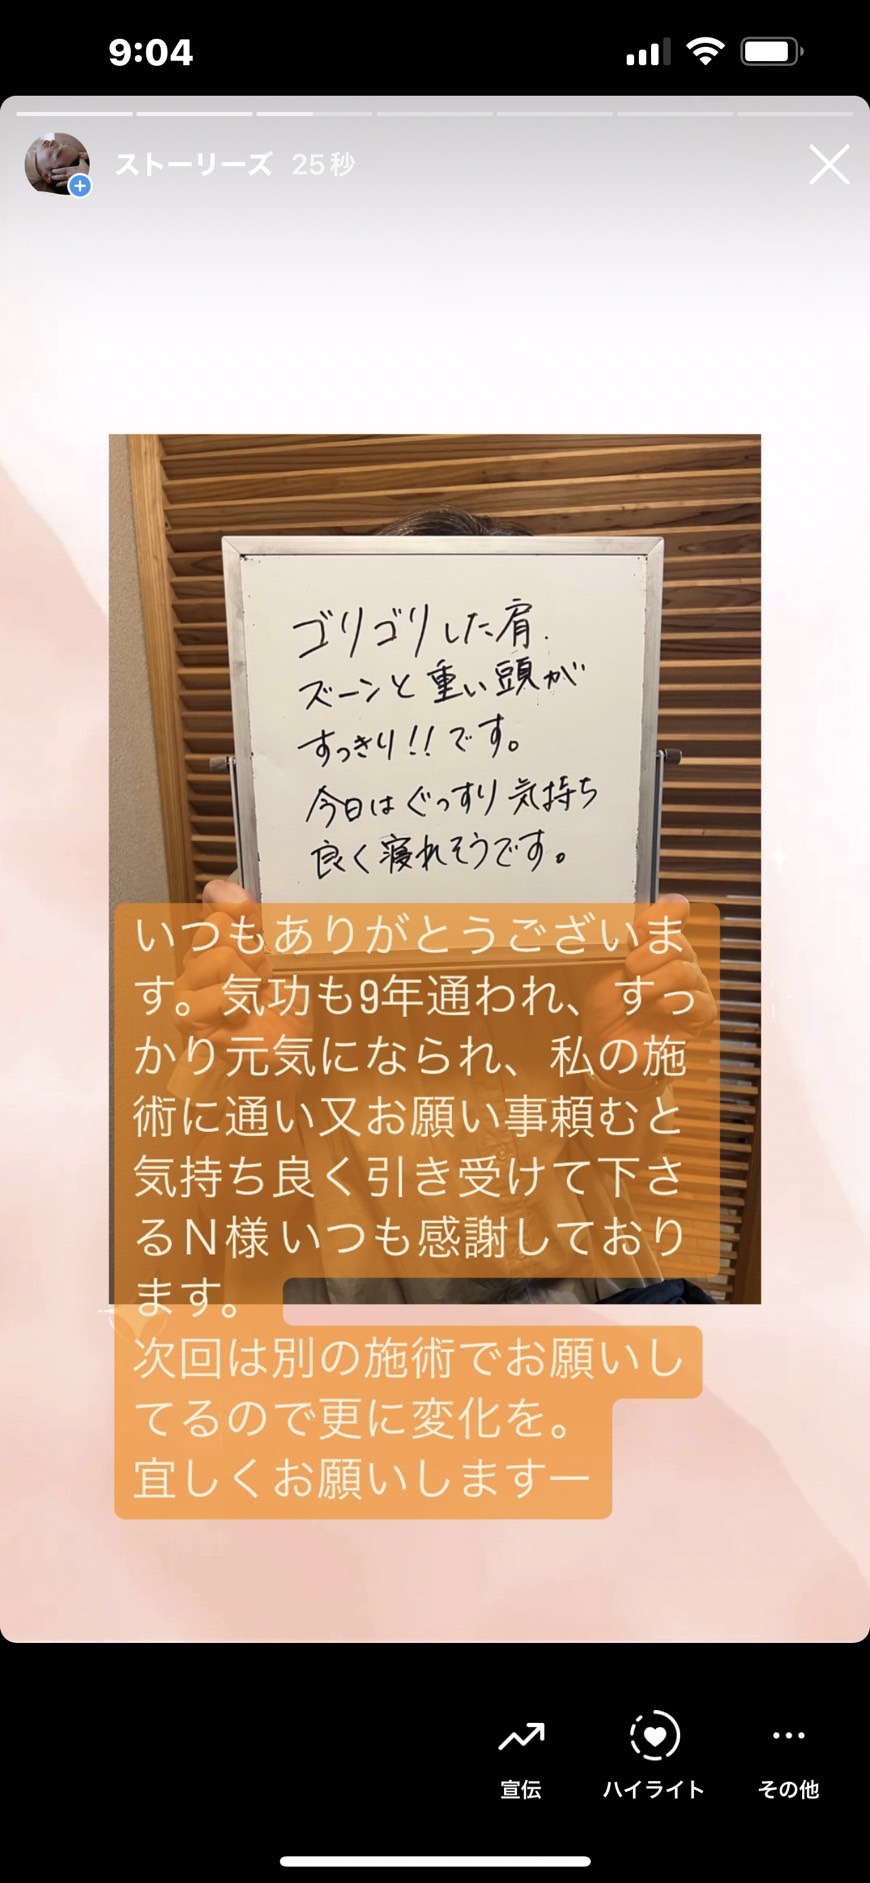 9:04
ストーリーズ 25秒
ゴリゴリした肩.
ズーンと重い頭が
すっきり!!です。
今日はぐっすり気持ち
良く寝れそうです。
いつもありがとうございま
す。気功も9年通われ、すっ
かり元気になられ、私の施
術に通い又お願い事頼むと
気持ち良く引き受けて下さ
るN様いつも感謝しており
ます。
次回は別の施術でお願いし
てるので更に変化を。
宜しくお願いしますー
宣伝 ハイライト その他